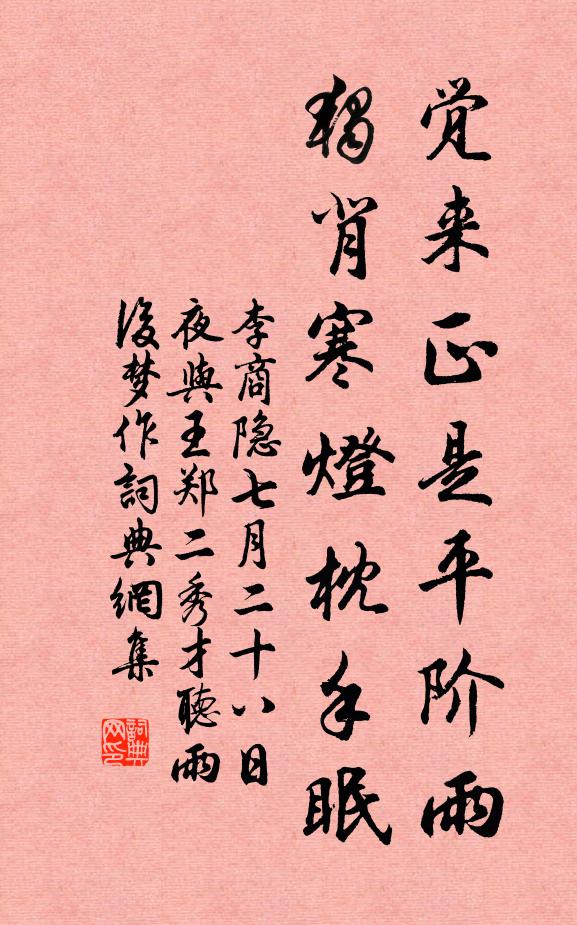 觉来正是平阶雨
独背寒燈枕手眠
李商隐七月二十八日
夜與王郑二秀才聽雨
後梦作詞典網集
詞典网印